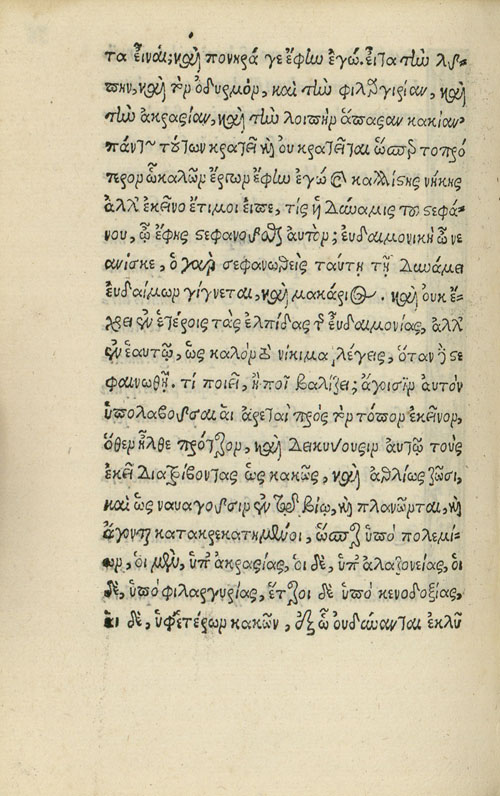 τα εἶναι; καὶ πονηρά γε ἔφην ἐγώ. εἶτα τὴν λύ-
πην, καὶ τὸν ὀδυρμὸν, καὶ τὴν φιλαργυρίαν, καὶ
τὴν ἀκρασίαν, καὶ τὴν λοιπὴν ἅπασαν κακίαν.
πάντων τούτων κρατεῖ καὶ οὐ κρατεῖται ὥσπερ τοπρό
τερον ὢ καλῶν ἔργων ἔφην ἐγώ καὶ καλλίστης νίκης
ἀλλ' ἐκεῖνο ἔτι μοι εἰπὲ, τίς ἡ δύναμις τοῦ στεφά-
νου, ᾧ ἔφης στεφανοῦσθαι αὐτὸν; εὐδαιμονικὴ ὦ νε
ανίσκε, ὁ γὰρ στεφανωθεὶς ταύτῃ τῇ δυνάμει
εὐδαίμων γίγνεται, καὶ μακάριος. καὶ οὐκ ἔ-
χει ἐν ἑτέροις τὰς ἐλπίδας τῆς εὐδαιμονίας, ἀλλ'
ἐν ἑαυτῷ, ὡς καλὸν τὸ νίκημα λέγεις, ὅταν δὲ στε
φανωθῇ. τί ποιεῖ, ἢ ποῖ βαδίζει; ἄγουσιν αὐτὸν
ὑπολαβοῦσαι αἱ ἀρεταὶ πρὸς τὸν τόπον ἐκεῖνον,
ὅθεν ἦλθε πρότερον, καὶ δεικνύουσιν αὐτῷ τοὺς
ἐκεῖ διατρίβοντας ὡς κακῶς, καὶ ἀθλίως ζῶσι,
καὶ ὡς ναυαγοῦσιν ἐν τῷ βίῳ, καὶ πλανῶνται, καὶ
ἄγονται κατακεκρατημένοι, ὥσπερ ὑπὸ πολεμί-
ων, οἱ μὲν, ὑπ' ἀκρασίας, οἱ δὲ, ὑπ' ἀλαζονείας, οἱ
δὲ, ὑπὸ φιλαργυρίας, ἕτεροι δὲ ὑπὸ κενοδοξίας,
οἱ δὲ, ὑφ' ἑτέρων κακῶν, ἐξ ὧν οὐ δύνανται ἐκλῦ